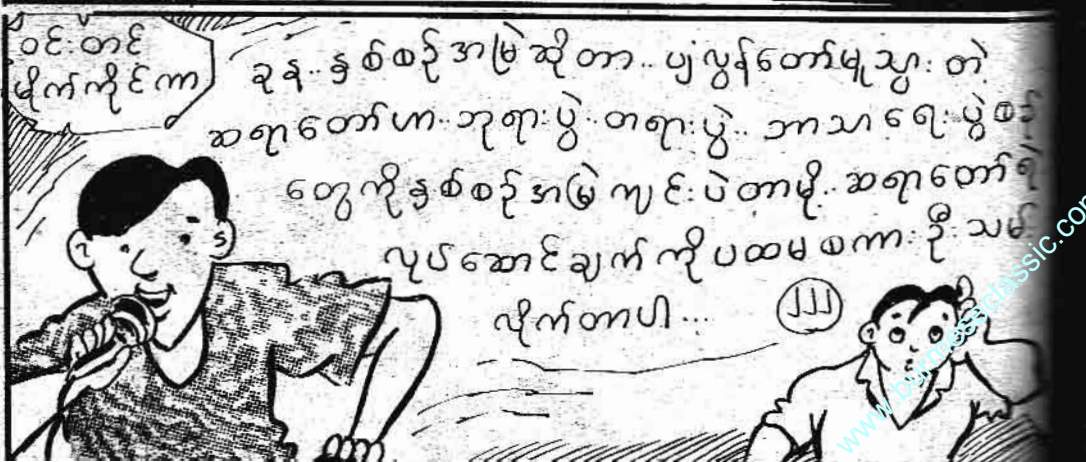 ဝင်းတင်
မိုက်ကိုင်ကာ
ခုန..နှစ်စဉ်အမြဲဆိုတာ..ပျံလွန်တော်မူသွားတဲ့
ဆရာတော်ဟာ..ဘုရားပွဲ..တရားပွဲ..ဘာသာရေးပွဲစဉ်
တွေကိုနှစ်စဉ်အမြဲကျင်းပဲတာမို့..ဆရာတော်ရဲ့
လုပ်ဆောင်ချက်ကိုပထမစကားဦးသမ်း
လိုက်တာပါ...
၂၂၂
www.burmeseclassic.com